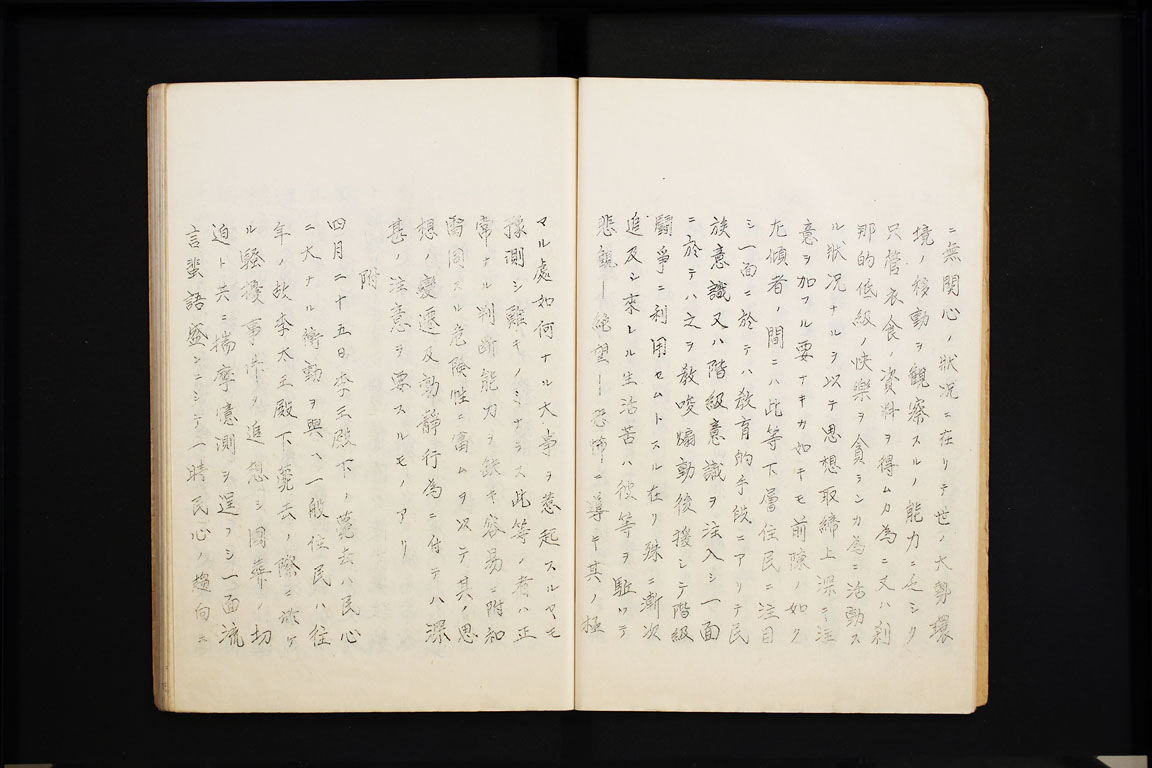 ニ無関心ノ状況ニ在リテ世ノ大勢環
境ノ移動ヲ観察スルノ能力ニ乏シク
只管衣食ノ資料ヲ得ムカ為ニ又ハ刹
那的低級ノ快樂ヲ貪ランカ為ニ活動ス
ル状况ナルヲ以テ思想取締上深キ注
意ヲ加フル要ナキカ如キモ前陳ノ如ク
左傾者ノ間ニハ此等下層住民ニ注目
シ一面ニ於テハ教育的手段ニアリテ民
族意識又ハ階級意識ヲ注入シ一面
ニ於テハ之ヲ教唆煽動後援シテ階級
闘爭ニ利用セムトスル在リ殊ニ漸次
追及シ來レル生活苦ハ彼等ヲ駈ツテ
悲観ー絶望ー恐怖ニ導キ其ノ極
マル處如何ナル大事ヲ惹起スルヤモ
豫測シ難キノミナラス此等ノ者ハ正
常ナル判断能力ヲ缺キ容易ニ附和
雷同スル危険性ニ富ムヲ以テ其ノ思
想ノ變遷及動静行為ニ付テハ深
甚ノ注意ヲ要スルモノアリ
附
四月二十五日李王殿下ノ薨去ハ民心
ニ大ナル衝動ヲ與ヘ一般住民ハ往
年ノ故李太王殿下薨去ノ際ニ於ケ
ル騒擾事件ヲ追想シ國葬ノ切
迫ト共ニ揣摩憶測ヲ逞フシ一面流
言蜚語盛ンニシテ一時民心ノ趨向ニ